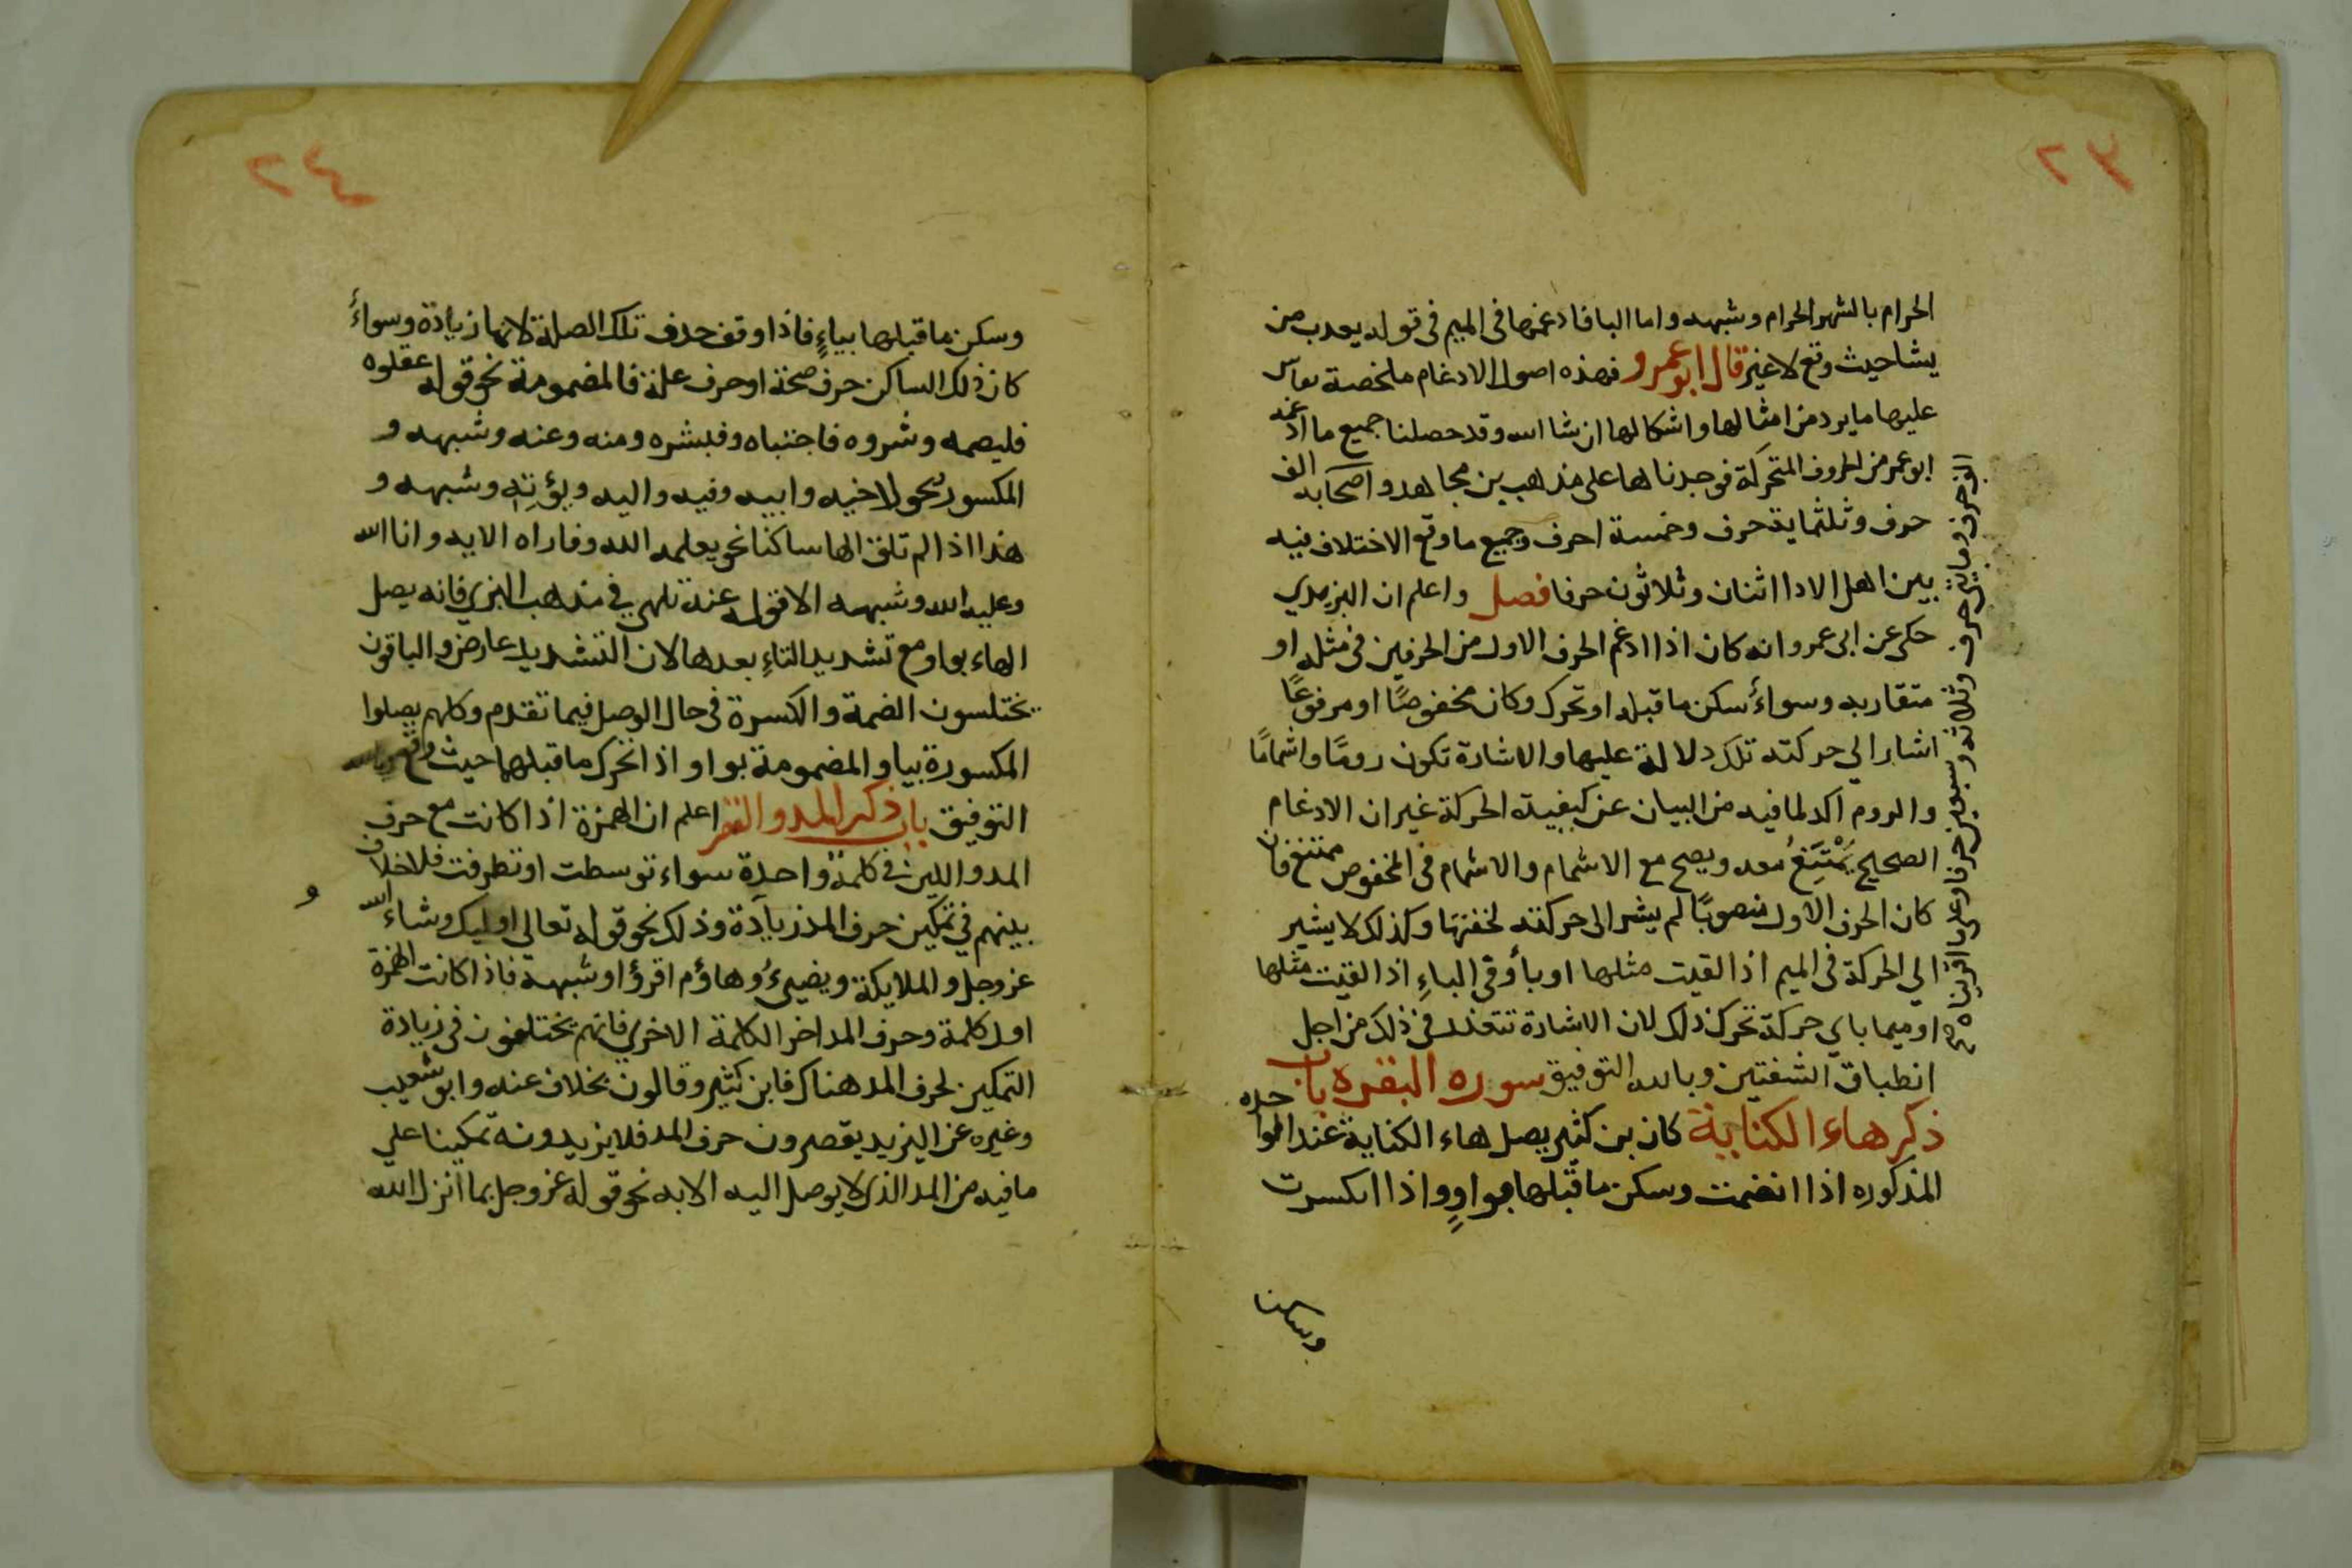 ٢٣
الحرام بالشهر الحرام وشبهه واما البا فادغمها فى الميم فى قوله يعدب من
يشا حيث وقع لا غير قال ابو عمرو فهذه اصول الادغام ملخصة يقاس
عليها ما يرد من امثالها واشكالها ان شا الله وقد حصلنا جميع ما ادغمه
ابو عمر من الحروف المتحركة فوجدناها على مذهب بن مجاهد واصحابه الف
حرف وثلثماية حرف وخمسة احرف وجميع ما وقع الاختلاف فيه
بين اهل الادا اثنان وثلاثون حرفا فصل واعلم ان اليزيدي
حكى عن ابى عمرو انه كان اذا ادغم الحرف الاول من الحرفين فى مثله او
متقاربه وسواءً سكن ما قبله او تحرك وكان مخفوضًا او مرفوعًا
اشار الي حركته تلك دلالة عليها والاشارة تكون رومًا واشمامًا
والروم اكد لما فيه من البيان عن كيفية الحركة غير ان الادغام
الصحيح يَمْتَنِعُ معه ويصح مع الاشمام والاشمام فى المخفوض ممتنع فان
كان الحرف الاول منصوبًا لم يشر الى حركته لخفتها وكذلك لا يشير
الي الحركة فى الميم اذا لقيت مثلها او بأ وفى الباءِ اذا لقيت مثلها
او ميما باي حركة تحرك ذلك لان الاشارة تتعذر فى ذلك من اجل
انطباق الشفتين وبالله التوفيق سوره البقره باب
ذكر هاء الكناية كان بن كثير يصل هاء الكناية عند الموا حده
المذكوره اذا انضمت وسكن ما قبلها بواوٍ واذا انكسرت
وسكن
الف حرف ومايتى حرف وثلاثة وسبعين حرفا وعلى ما اقريناه صح
٢٤
وسكن ما قبلها بياءٍ فاذا وقف حدف تلك الصلة لانها زيادة وسواءً
كان ذلك الساكن حرف صحة او حرف علة فالمضمومة نحو قوله عقلوه
فليصمه وشروه فاجتباه وفبشره ومنه وعنه وشبهه و
المكسور نحو لاخيه وابيه وفيه واليه ويؤتِهِ وشبهه و
هذا اذا لم تلق الها ساكنا نحو يعلمه الله وفاراه الايه واتا الله
وعليه الله وشبهه الا قوله عنه تلهي في مذهب البزي فانه يصل
الهاء بواو مع تشديد التاءِ بعدها لان التشديد عارض والباقون
يختلسون الضمة والكسرة فى حال الوصل فيما تقدم وكلهم يصلوا
المكسورة بيا والمضمومة بواو اذا تحرك ما قبلهما حيث وقع وبالله
التوفيق باب ذكر المد والقصر اعلم ان الهمزة اذا كانت مع حرف
المد واللين فى كلمة واحدة سواء توسطت او تطرفت فلا خلاف
بينهم في تمكين حرف المد زيادة وذلك نحو قوله تعالى اوليك وشاء الله
عز وجل والملايكة ويضيىءُ وهاؤم اقرؤا وشبهه فاذا كانت الهمزة
اول كلمة وحرف المد اخر الكلمة الاخرى فانهم يختلفون فى زيادة
التمكين لحرف المد هناك فابن كثير وقالون بخلاف عنه وابو شعيب
وغيره عن اليزيد يقصرون حرف المد فلا يزيدونه تمكينا علي
ما فيه من المد الذى لا يوصل اليه الا به نحو قوله عز وجل بما انزل الله
و